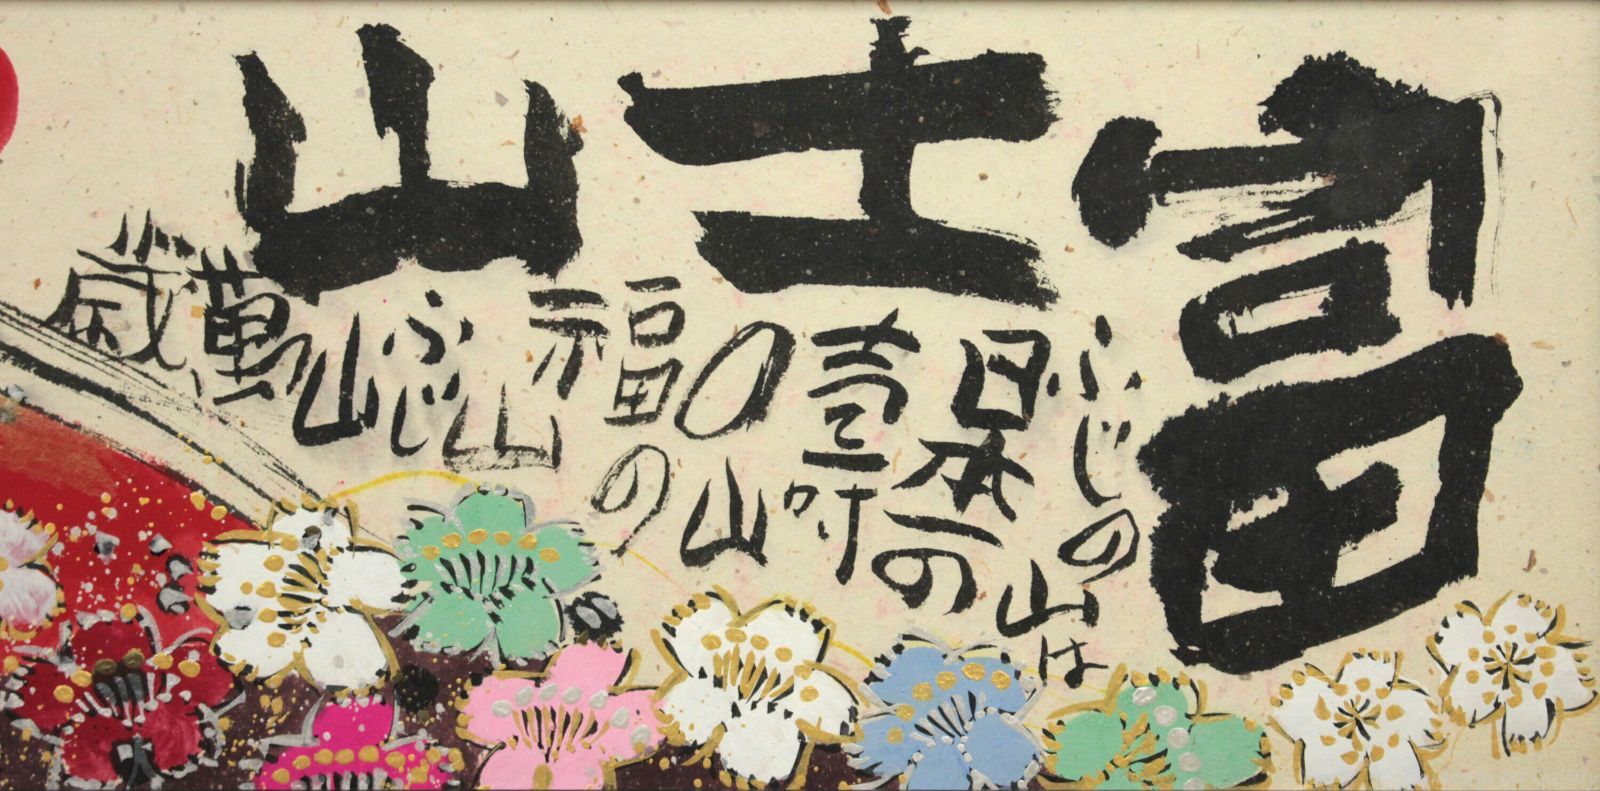 富士山
ふじの山は
日本一の
寿の山
福の山
ふじ山
萬歳